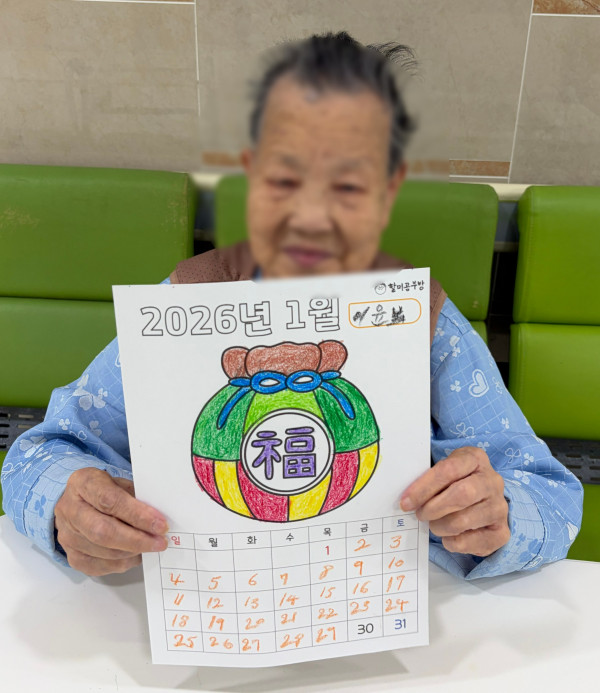 할미공부방
2026년 1월
福
일 월 화 수 목 금 토
1 2 3
4 5 6 7 8 9 10
11 12 13 14 15 16 17
18 19 20 21 22 23 24
25 26 27 28 29 30 31